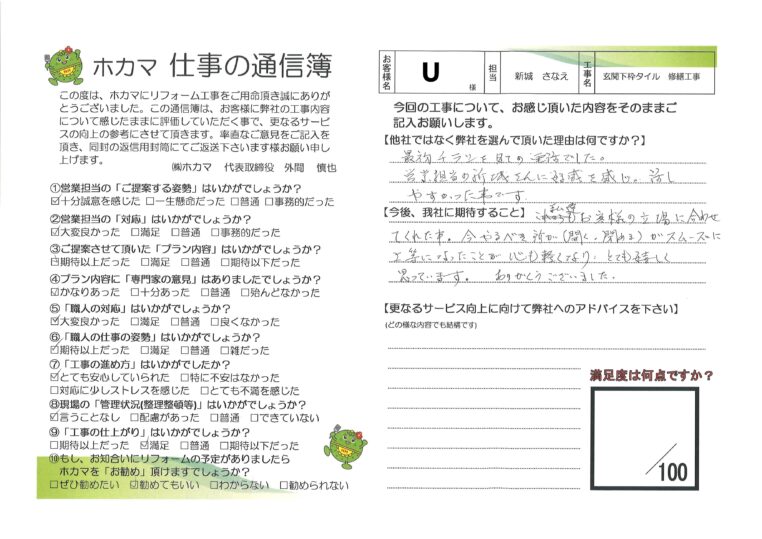 ホカマ 仕事の通信簿
この度は、ホカマにリフォーム工事をご用命頂き誠にありが
とうございました。この通信簿は、お客様に弊社の工事内容
について感じたままに評価していただく事で、更なるサービ
スの向上の参考にさせて頂きます。率直なご意見をご記入を
頂き、同封の返信用封筒にてご返送下さいます様お願い申し
上げます。
㈱ホカマ 代表取締役 外間 慎也
①営業担当の「ご提案する姿勢」はいかがでしょうか?
☑十分誠意を感じた □一生懸命だった □普通 □事務的だった
②営業担当の「対応」はいかがでしょうか?
☑大変良かった □満足 □普通 □事務的だった
③ご提案させて頂いた「プラン内容」はいかがでしょうか?
☑期待以上だった □満足 □普通 □期待以下だった
④プラン内容に「専門家の意見」はありましたでしょうか?
☑かなりあった □十分あった □普通 □殆んどなかった
⑤「職人の対応」はいかがでしょうか?
☑大変良かった □満足 □普通 □良くなかった
⑥「職人の仕事の姿勢」はいかがでしょうか?
☑期待以上だった □満足 □普通 □雑だった
⑦「工事の進め方」はいかがでしたか?
☑とても安心していられた □特に不安はなかった
□対応に少しストレスを感じた □とても不満を感じた
⑧現場の「管理状況(整理整頓等)」はいかがでしょうか?
☑言うことなし □配慮があった □普通 □できていない
⑨「工事の仕上がり」はいかがでしょうか?
□期待以上だった ☑満足 □普通 □期待以下だった
⑩もし、お知合いにリフォームの予定がありましたら
ホカマを「お勧め」頂けますでしょうか?
□ぜひ勧めたい ☑勧めてもいい □わからない □勧められない
お客様名 U 様 担当 新城 さなえ 工事名 玄関下枠タイル 修繕工事
今回の工事について、お感じ頂いた内容をそのままご
記入お願いします。
【他社ではなく弊社を選んで頂いた理由は何ですか?】
最初チラシを見ての電話でした。
営業担当の新城さんに好感を感じ。話し
やすかった事です
【今後、我社に期待すること】これからもお客様の立場に合わせ
てくれた事。今やるべき所が(開く。閉める)がスムーズに
工事になったことが 心も軽くなり、とても嬉しく
思っています。 ありがとうございました。
【更なるサービス向上に向けて弊社へのアドバイスを下さい】
(どの様な内容でも結構です)
満足度は何点ですか?
/100